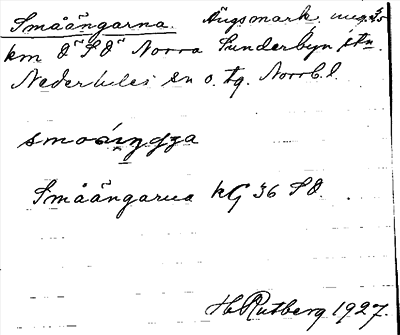 Småängarna. Ängsmark, ung.
km O SO Norra Sunderbyn stn.
Nederluleå sn o. tg. Norrb. l.
Småängarna kG 36 SO.
H. Rutberg 1927.